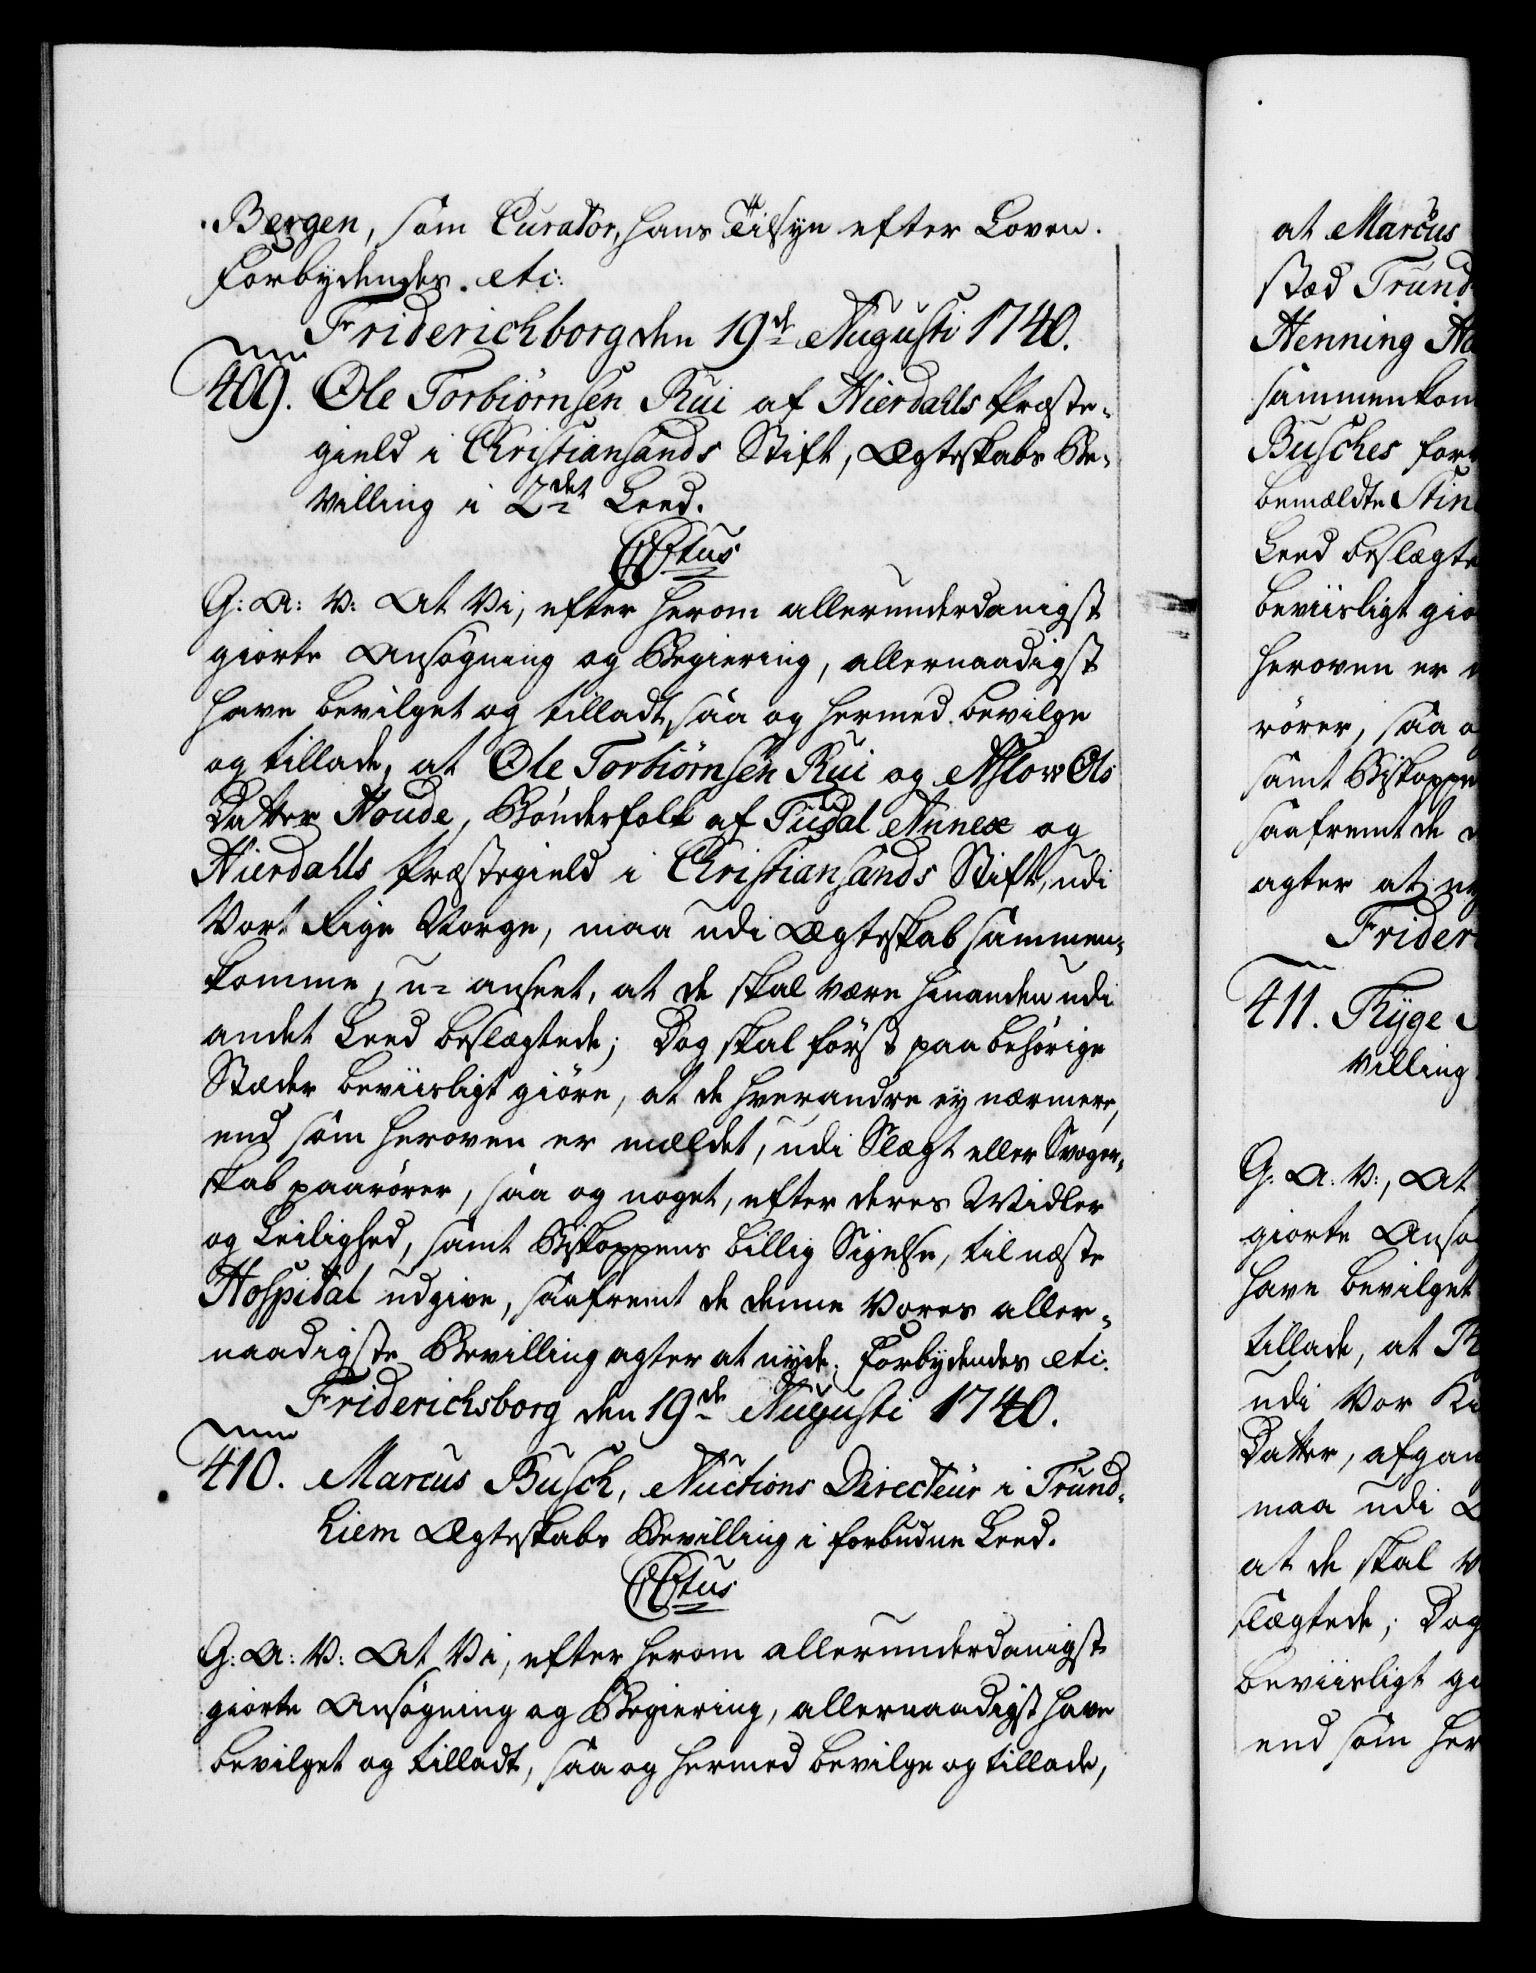 Bergen, som Curator, hans Tilsyn efter Loven.
Forbydendes. etc:
Friderichborg den 19de Augusti 1740.
409. Ole Torbiørnsen Rui af Hierdahls Præste-
gield i Christiansands Stift, Ægteskabs Be-
villing i 2det Leed.
CVtus
G: A: V: At Vi, efter herom allerunderdanigst
giorte Ansøgning og Begiering, allernaadigst
have bevilget og tilladt, saa og hermed bevilge
og tillade, at Ole Torbiørnsen Rui og Aslow Ols
Datter Houde, Bønderfolk af Tudal Annex og
Hierdahls Præstegield i Christiansands Stift, udi
Vort Rige Norge, maa udi Ægteskab sammen-
komme, u- anseet, at de skal være hinanden udi
andet Leed beslægtede; Dog skal først paa behørige
Stæder beviisligt giøre, at de hverandre ey nærmere,
end som heroven er meldet, udi Slægt eller Svoger-
skab paarører, saa og noget, efter deres Midler
og Leilighed, samt Biskoppens billig Sigelse, til næste
Hospital udgive, saafremt de denne Vores aller-
naadigste Bevilling agter at nyde. Forbydendes etc.
Friderichsborg den 19de Augusti 1740.
410. Marcus Busch, Auctions Directeur i Trund-
hiem Ægteskabs Bevilling i forbudne Leed.
CVtus
G: A: V: At Vi, efter herom allerunderdanigst
giorte Ansøgning og Begiering, allernaadigst have
bevilget og tilladt, saa og hermed bevilge og tillade,
at Marcus
stæd Trund
Henning
sammenkom
Busches for
bemældte Stin
Leed beslægte
beviisligt gio
heroven er
rører, saa o
samt Biskoppe
saafremt de
agter at ny
Frider
411. Thyge
villing
G: A: V:, At
giorte Ansø
have bevilget
tillade, at
udi Vor Ki
Datter, afgan
maa udi
at de skal v
slægtede; Dog
beviisligt gi
end som her